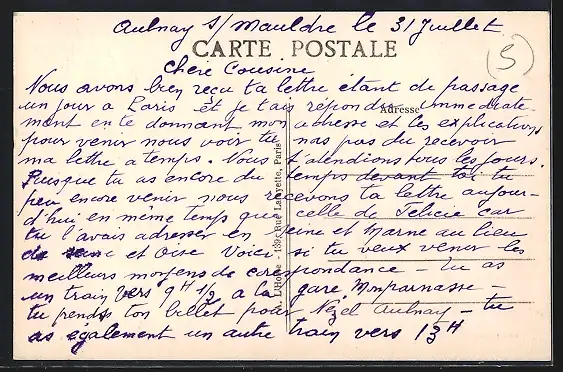 Aulnay s/ Mauldre le 31 Juillet
CARTE POSTALE
5
Chère Cousine
Adresse
Nous avons bien reçu ta lettre étant de passage
un jour à Paris et je t'ais répondu immédiate-
ment en te donnant mon adresse et les explications
pour venir nous voir tu nas pas du recevoir
ma lettre a temps. Nous t'alendions tous les jours.
Puisque tu as encore du temps devant toi tu
peu encore venir nous recevons ta lettre aujour-
d'hui en même temps que celle de Félicie car
tu l'avais adresser en Seine et Marne au lieu
de Seine et Oise Voici si tu veux venir les
meilleurs moyens de correspondance - tu as
un train vers 9H 1/2 a la gare Mnparnasse -
tu prends ton billet pour Nézel Aulnay - tu
as également un autre train vers 13H
L'Hoste - 139, Rue Lafayette, Paris